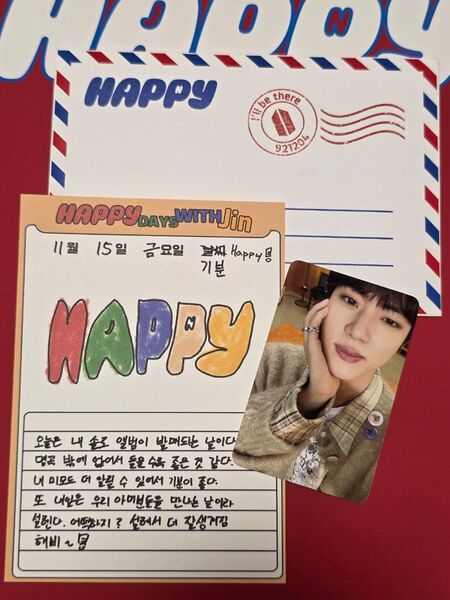 HAPPY
HAPPY
I'll be there
921204
HAPPY DAYS WITH Jin
11월 15일 금요일 날씨 Happy
기분
HAPPY
오늘은 내 솔로 앨범이 발매되는 날이다
명곡 밖에 없어서 들을수록 좋은 것 같다.
내 미모도 더 알릴 수 있어서 기분이 좋다.
또 내일은 우리 아미분들을 만나는 날이라
설렌다. 어떡하지? 설레서 더 잘생겨짐
해비~